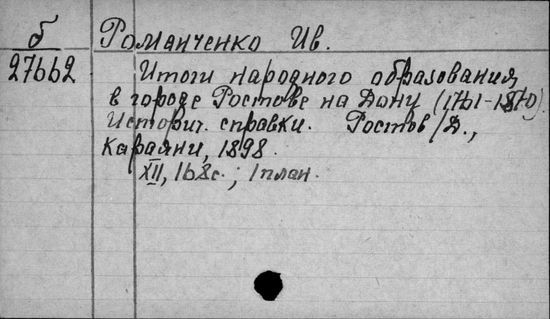 б
27662
Романченко Ив.
Итоги народного образования
в городе Ростове на Дону (1761-1870).
Историч. справки. Ростов/Д.,
Караяни, 1898.
XII, 168с.; 1 план.